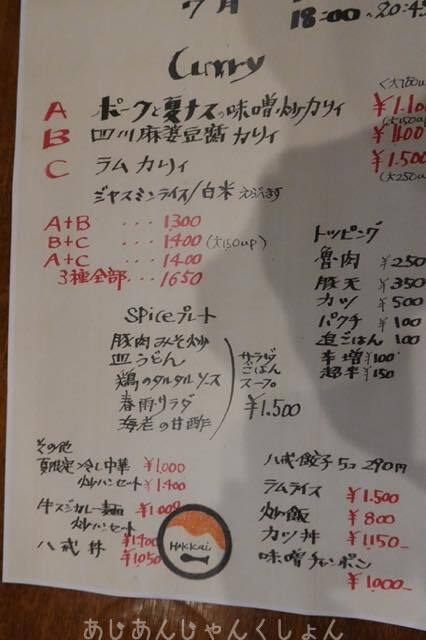 7月
18:00~20:45
Curry
A ポークと夏ナスの味噌炒カリィ ¥1.10
B 四川麻婆豆腐カリィ ¥1100
C ラムカリィ ¥1.500
(大250up)
ジャスミンライス/白米 えらべます
A+B ... 1300
B+C ... 1400 (大150up)
A+C ... 1400
3種全部. 1650
トッピング
魯肉 ¥250
豚天 ¥350
カツ ¥500
パクチ ¥100
追ごはん 100
辛増 ¥100
超辛 ¥150
Spiceプレート
豚肉みそ炒
皿うどん
鶏のタルタルソース
春雨サラダ
海老の甘酢
サラダ
ごはん
スープ
¥1.500
その他
夏限定 冷し中華 ¥1,000
炒ハンセート ¥1.400
牛スジカレー麺
炒ハンセート ¥1400
八戒丼 ¥1,050
Hakkai
八戒餃子 5コ 290円
ラムライス ¥1.500
炒飯 ¥800
カツ丼 ¥1,150-
味噌チャンポン ¥1,000-
あじあんじゃんくしょん